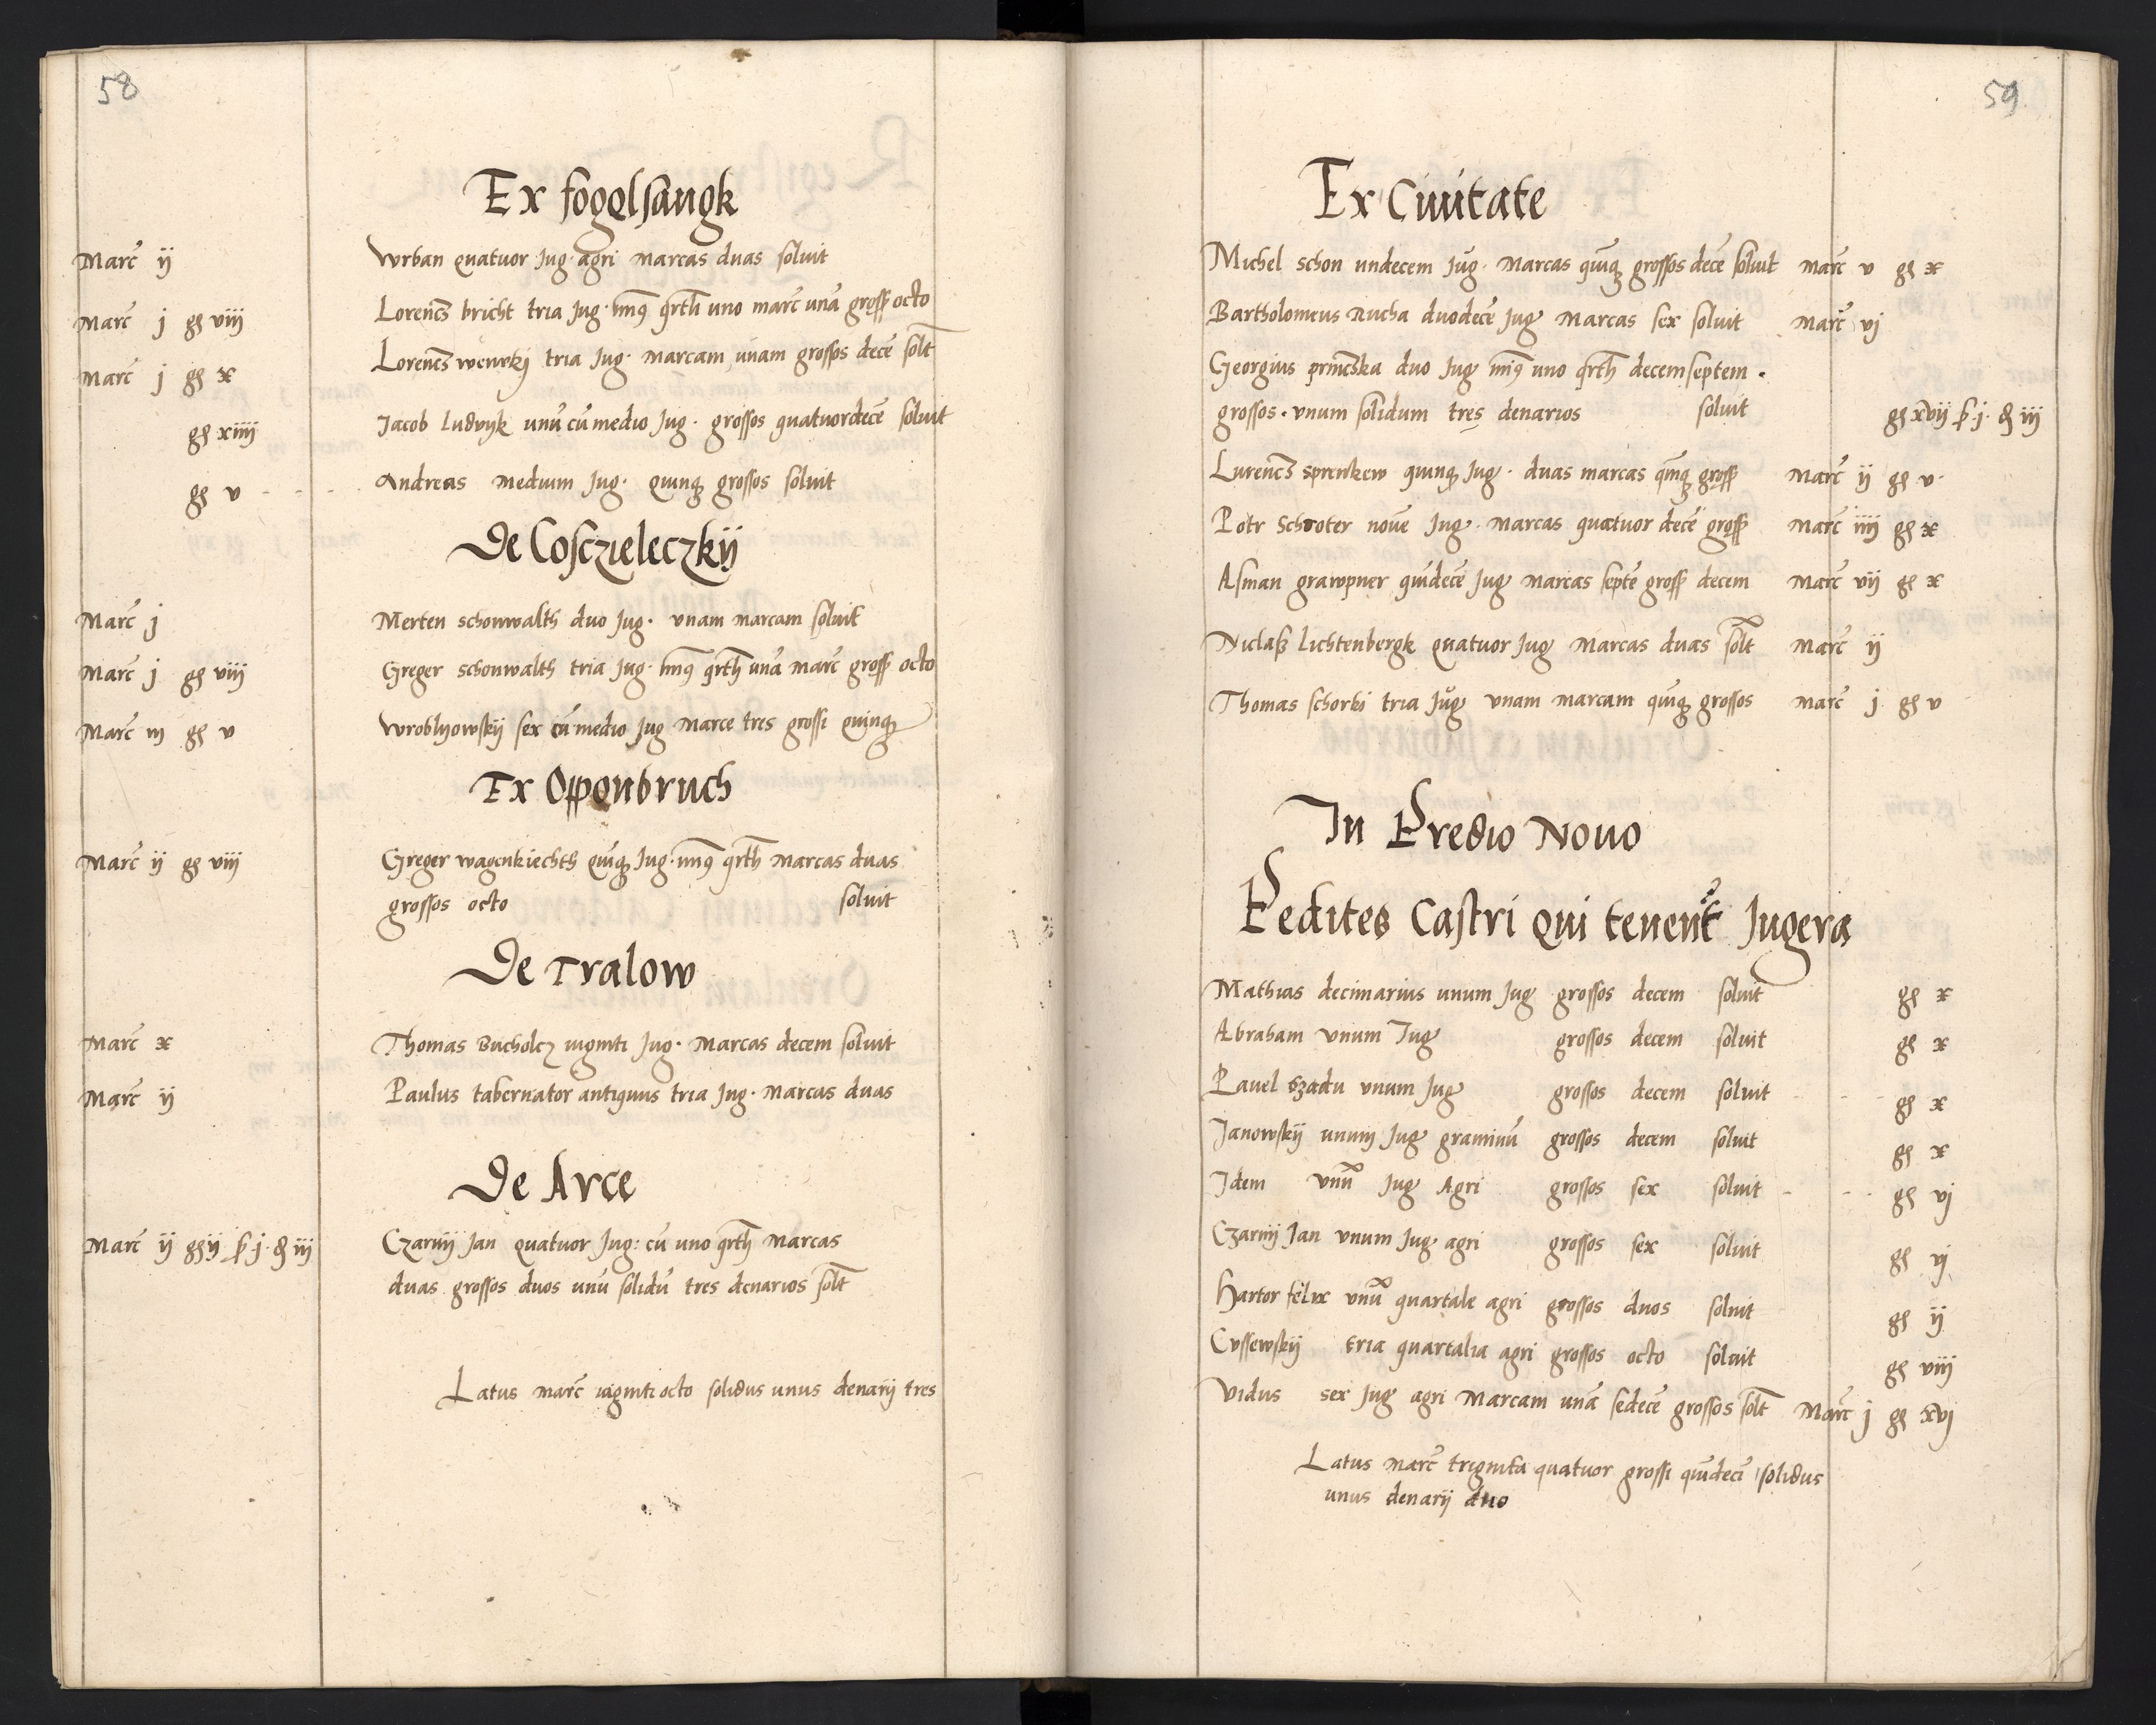 58
Ex fogelsangk
Marc̄ ij Wrban quatuor Jug· agri Marcas duas soluit
Marc̄ j gſ viij Lorencȝ bricht tria Jug· min9 qrth uno marc̄ unā groſſ octo
Marc̄ j gſ x Lorencȝ wenvkj tria Jug· Marcam unam grossos decē solt
gſ xiiij Jacob Ludvyk unū cū medio Jug· grossos quatuordecē soluit
gſ v - - - Andreas Medium Jug· quinqȝ grossos soluit
De Cosczieleczkij
Marc̄ j Merten schonwalth duo Jug· unam marcam soluit
Marc̄ j gſ viij Greger schonwalth tria Jug· min9 qrth unā Marc̄ groſſ octo
Marc̄ iij gſ v Wroblyowskij sex cū medio Jug Marce tres grossi quinqȝ
Ex Oppenbruch
Marc̄ ij gſ viij Greger wagenkiechth quīqȝ Jug· min9 qrth Marcas duas
grossos octo soluit
De Tralow
Marc̄ x Thomas Bucholcz viginti Jug· Marcas decem soluit
Marc̄ ij Paulus tabernator antiquus tria Jug· Marcas duas
De Arce
Marc̄ ij gſ ij ẜ j· ꝺ iij Czarnij Jan quatuor Jug: cū uno qrth Marcas
duas grossos duos unū solidū tres denarios solt
Latus marc̄ viginti octo solidus unus denarij tres
59
Ex Ciuitate
Michel schon undecem Jug· Marcas quīqȝ grossos decē soluit Marc̄ v gſ x
Bartholomeus Rucha duodecē Jug Marcas sex soluit Marc̄ vj
Georgius princȝka duo Jug min9 uno qrth decemseptem·
grossos· unum solidum tres denarios soluit gſ xvij ẜ j· ꝺ iij
Lurencȝ sprenkew quinqȝ Jug· duas marcas qmqȝ groſſ Marc̄ ij gſ v·
Potr Schroter nouē Jug· Marcas quatuor decē groſſ Marc̄ iiij gſ x
Asman grawpner quīdecē Jug Marcas septē groſſ decem Marc̄ vij gſ x
Niclaß Lichtenbergk quatuor Jug Marcas duas solt Marc̄ ij
Thomas schorki tria Jug unam marcam quīqȝ grossos Marc̄ j gſ v
In Predio Nouo
Pedites Castri qui tenent Jugera
Mathias decimarius unum Jug grossos decem soluit gſ x
Abraham unum Jug grossos decem soluit gſ x
Pauel Szadu unum Jug grossos decem soluit - - - gſ x
Janowskij unum Jug graminū grossos decem soluit gſ x
Idem unū Jug Agri grossos sex soluit - - - gſ vj
Czarnij Jan unum Jug agri grossos sex soluit gſ vj
Hartor felix unū quartale agri grossos duos soluit gſ ij
Cussewskij tria quartalia agri grossos octo soluit gſ viij
Vidus sex Jug agri Marcam unā sedecē grossos solt Marc̄ j gſ xvj
Latus marc̄ triginta quatuor grossi quīdecī solidus
unus denarij duo